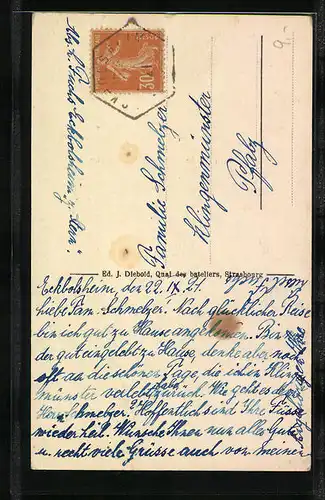 9.-
Abs. L. Fuchs Eckbolsheim
30c
Familie Schmelzer
Klingenmünster
Pfalz
Ed. J. Diebold, Quai des bateliers, Strasbourg
Eckbolsheim, den 22. IX. 21.
Liebe Fam. Schmelzer. Nach glücklicher Reise
bin ich gut zu Hause angekommen. Bin
der gut eingelebt zu Hause, denke aber noch
oft an die schönen Tage, die ich in Kling
münster verlebt zurück. Wie geht es den
Herrn Schmelzer? Hoffentlich sind Ihre Füsse
wieder heil. Wünsche Ihnen nur alles Gute
u. recht viele Grüsse auch von meiner